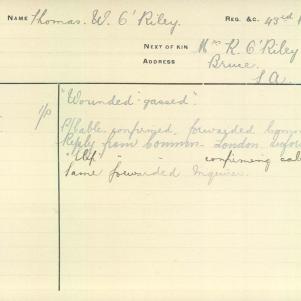 NAME Thomas. W. O'Riley. REG. &C. 43rd
NEXT OF KIN Mrs R. O'Riley
ADDRESS Bruce.
S.A.
"Wounded-gassed".
P/Cable. confirmed. forwarded
Reply from Commrs. London
" " confirming
Same forwarded Inquirer.